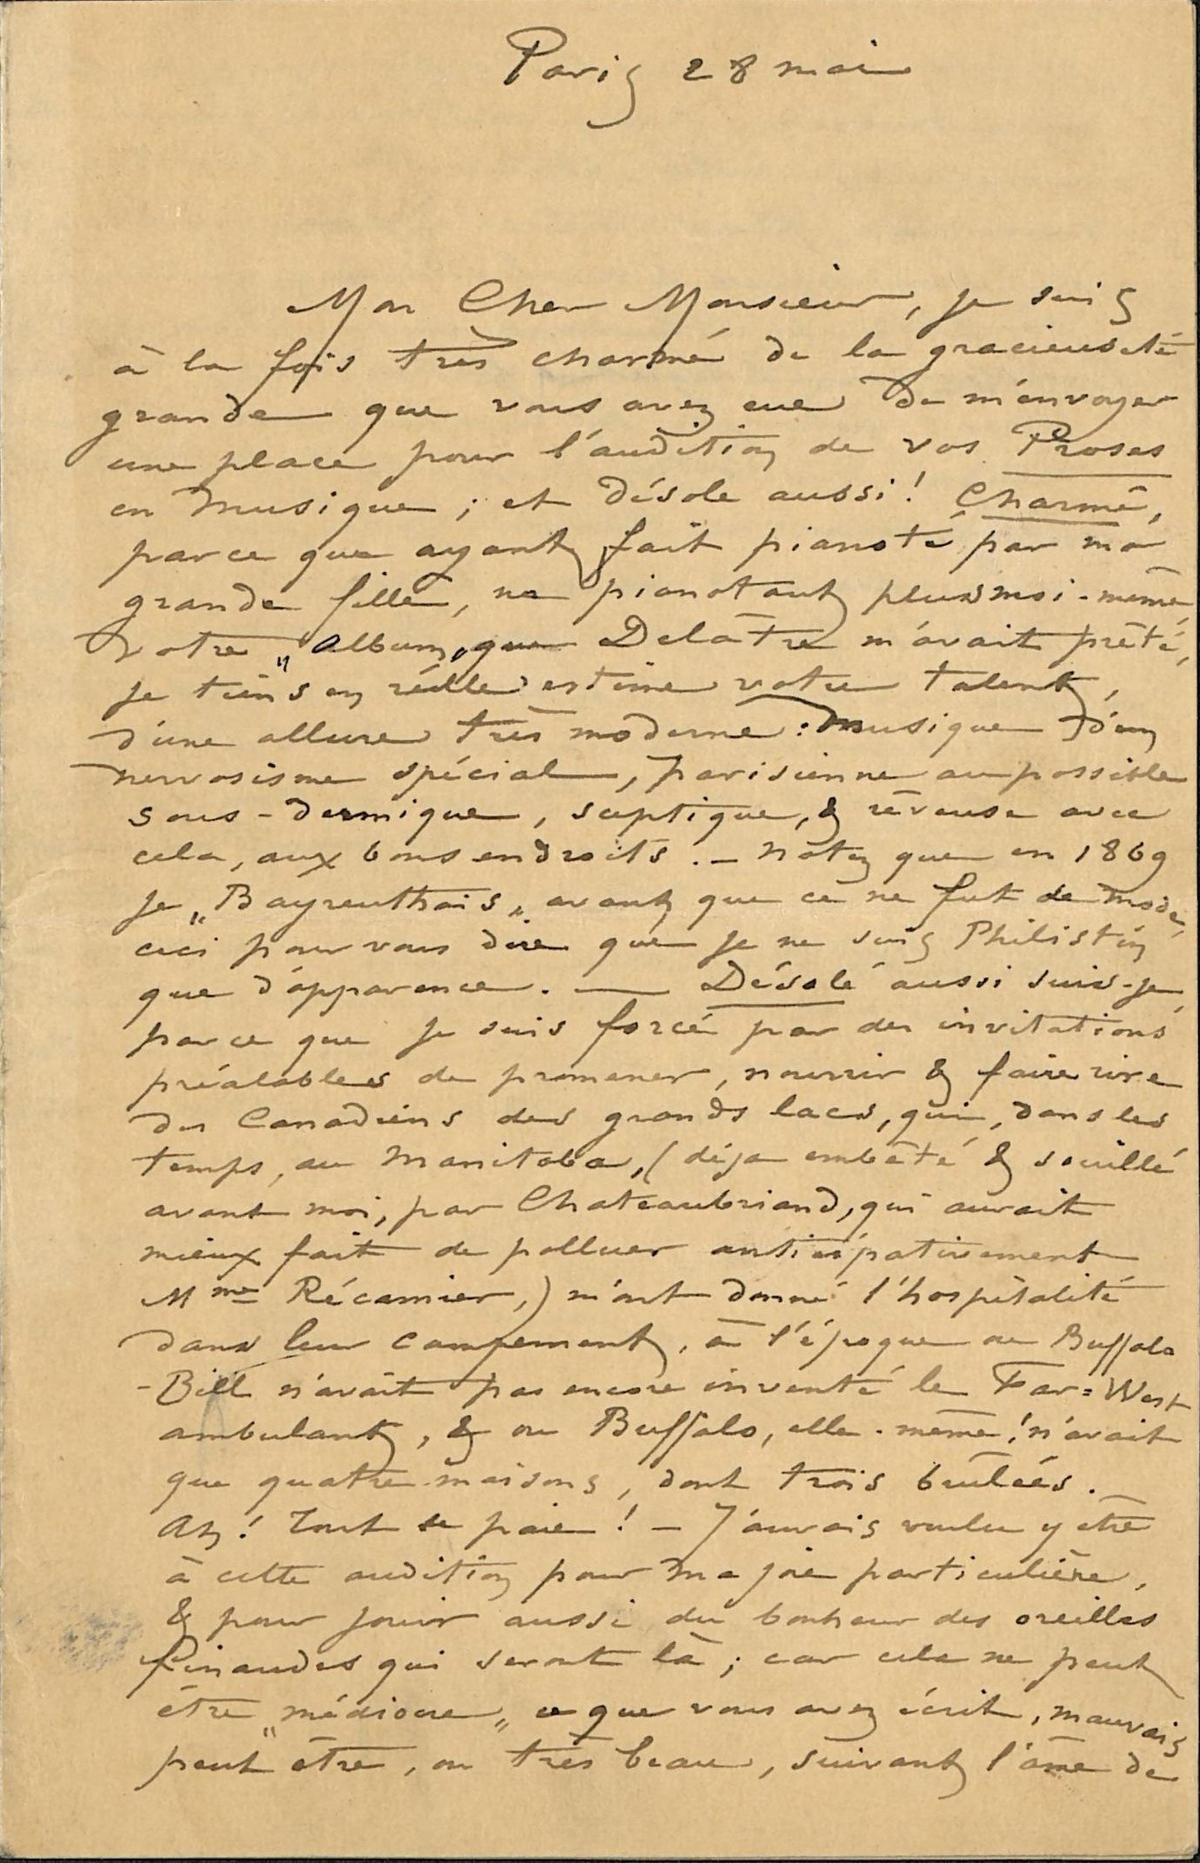 Paris 28 mai
Mon Cher Monsieur, je suis
à la fois très charmé de la gracieuseté
grande que vous avez eue de m'envoyer
une place pour l'audition de vos Proses
en Musique ; et désolé aussi ! Charmé,
parce que ayant fait pianoté par ma
grande fille, ne pianotant plus moi-même
votre „Album„ que Delâtre m'avait prêté,
je tiens en réelle estime votre talent,
d'une allure très moderne : musique d'un
nervosisme spécial, parisienne au possible
sous-dermique, sceptique, & rêveuse avec
cela, aux bons endroits. — Notez que en 1869
je „Bayreuthais„ avant que ce ne fut de mode,
ceci pour vous dire que je ne suis Philistin
que d'apparence. — Désolé aussi suis-je,
parce que je suis forcé par des invitations
préalables de promener, nourrir & faire rire
des Canadiens des grands lacs, qui, dans les
temps, au Manitoba, (déjà embêté & souillé
avant moi, par Chateaubriand, qui aurait
mieux fait de polluer anticipativement
Mme Récamier,) m'ont donné l'hospitalité
dans leur campement, à l'époque ou Buffalo
-Bill n'avait pas encore inventé le Far=West
ambulant, & ou Buffalo, elle-même ! n'avait
que quatre maisons, dont trois brûlées.
Ah ! Tout se paie ! — J'aurais voulu y être
à cette audition pour ma joie particulière,
& pour jouir aussi du bonheur des oreilles
finaudes qui seront là ; car cela ne peut
être „médiocre„ ce que vous avez écrit, mauvais
peut être, ou très beau, suivant l'âme de